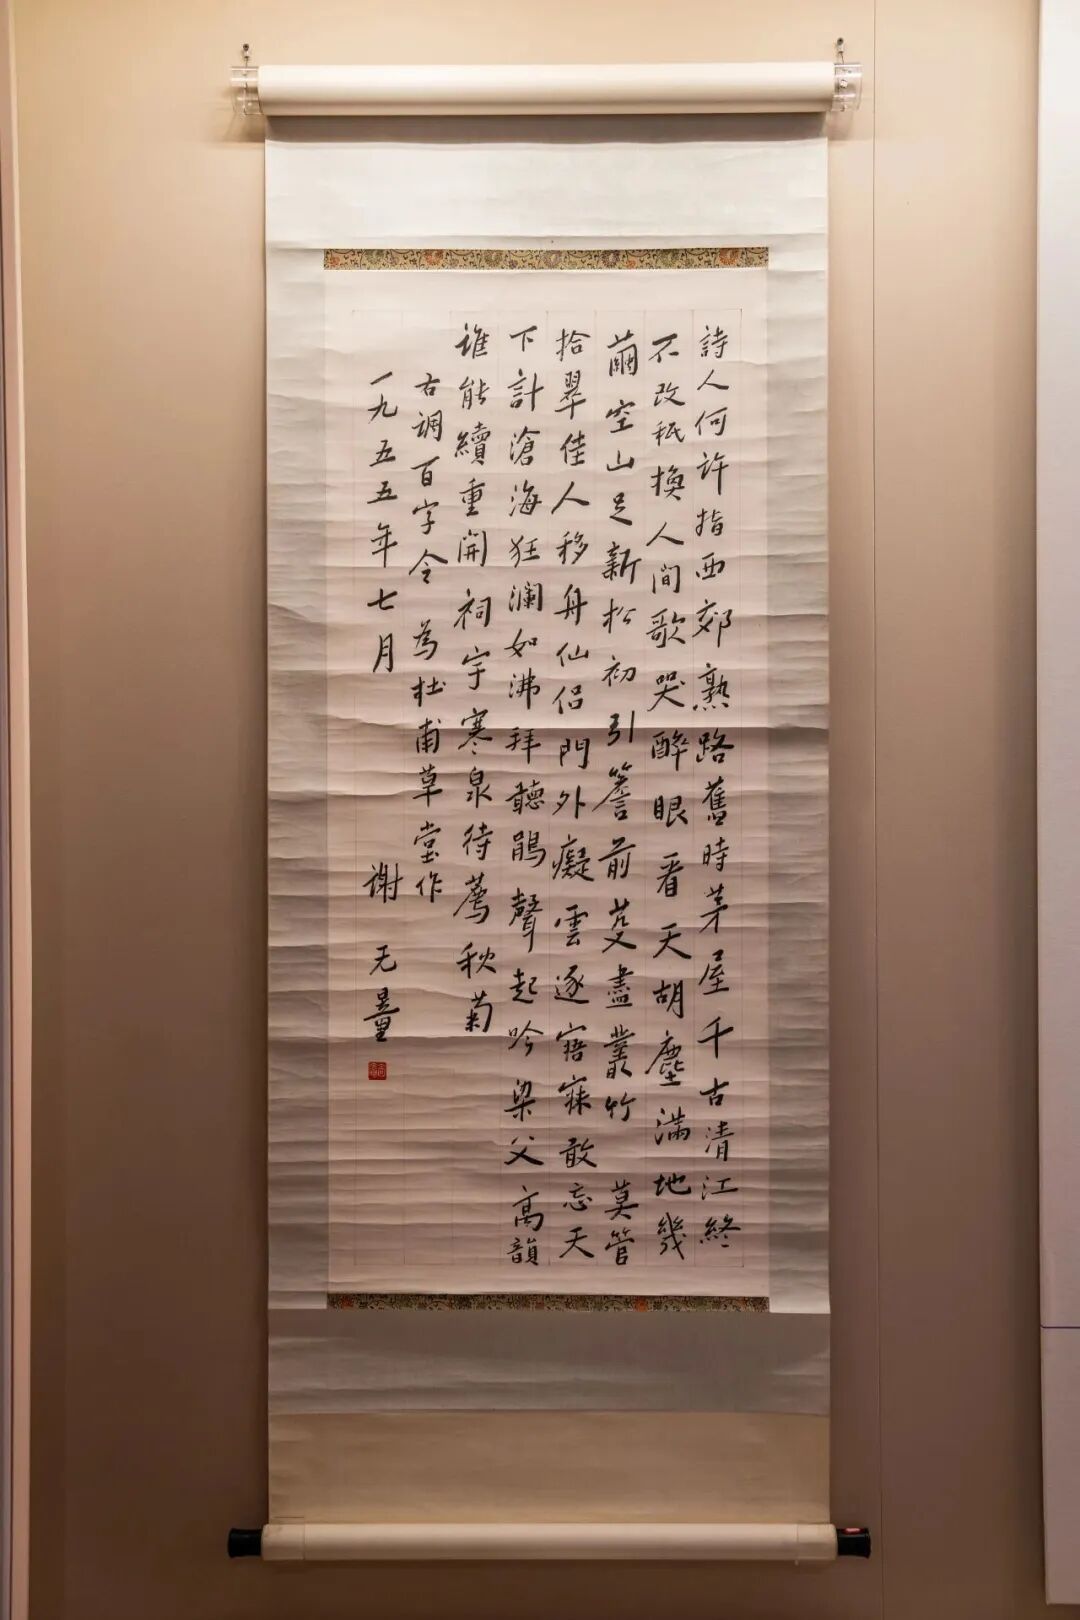 詩人何許指西郊熟路舊時茅屋千古清江終
不改秖換人間歌哭醉眼看天胡塵滿地幾
繭空山足新松初引簷前芟盡叢竹 莫管
拾翠佳人移舟仙侣門外癡雲逐寤寐敢忘天
下計滄海狂瀾如沸拜聽鵑聲起吟梁父高韻
誰能續重開祠宇寒泉待薦秋菊
右調百字令 為杜甫草堂作
一九五五年七月 谢无量